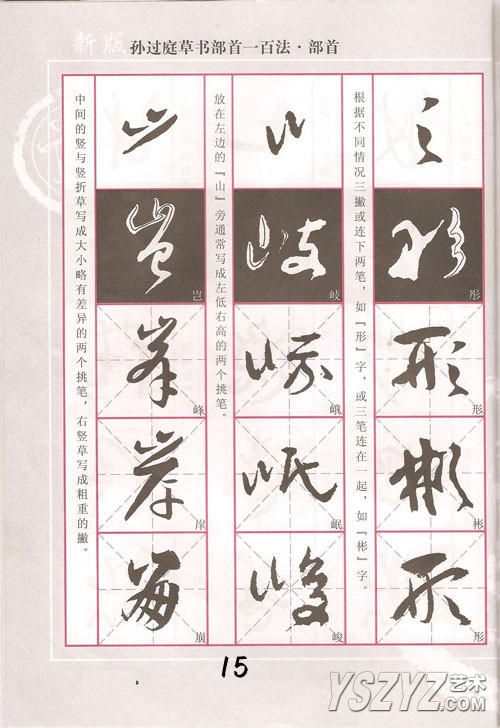 新版 孙过庭草书部首一百法·部首
根据不同情况三撇或连下两笔，如『形』字，或三笔连在一起，如『彬』字。
彤
形
彬
形
放在左边的『山』旁通常写成左低右高的两个挑笔。
岐
峨
岷
峻
中间的竖与竖折草写成大小略有差异的两个挑笔，右竖草写成粗重的撇。
岂
峰
岸
崩
15
YSZYZ艺术
.com